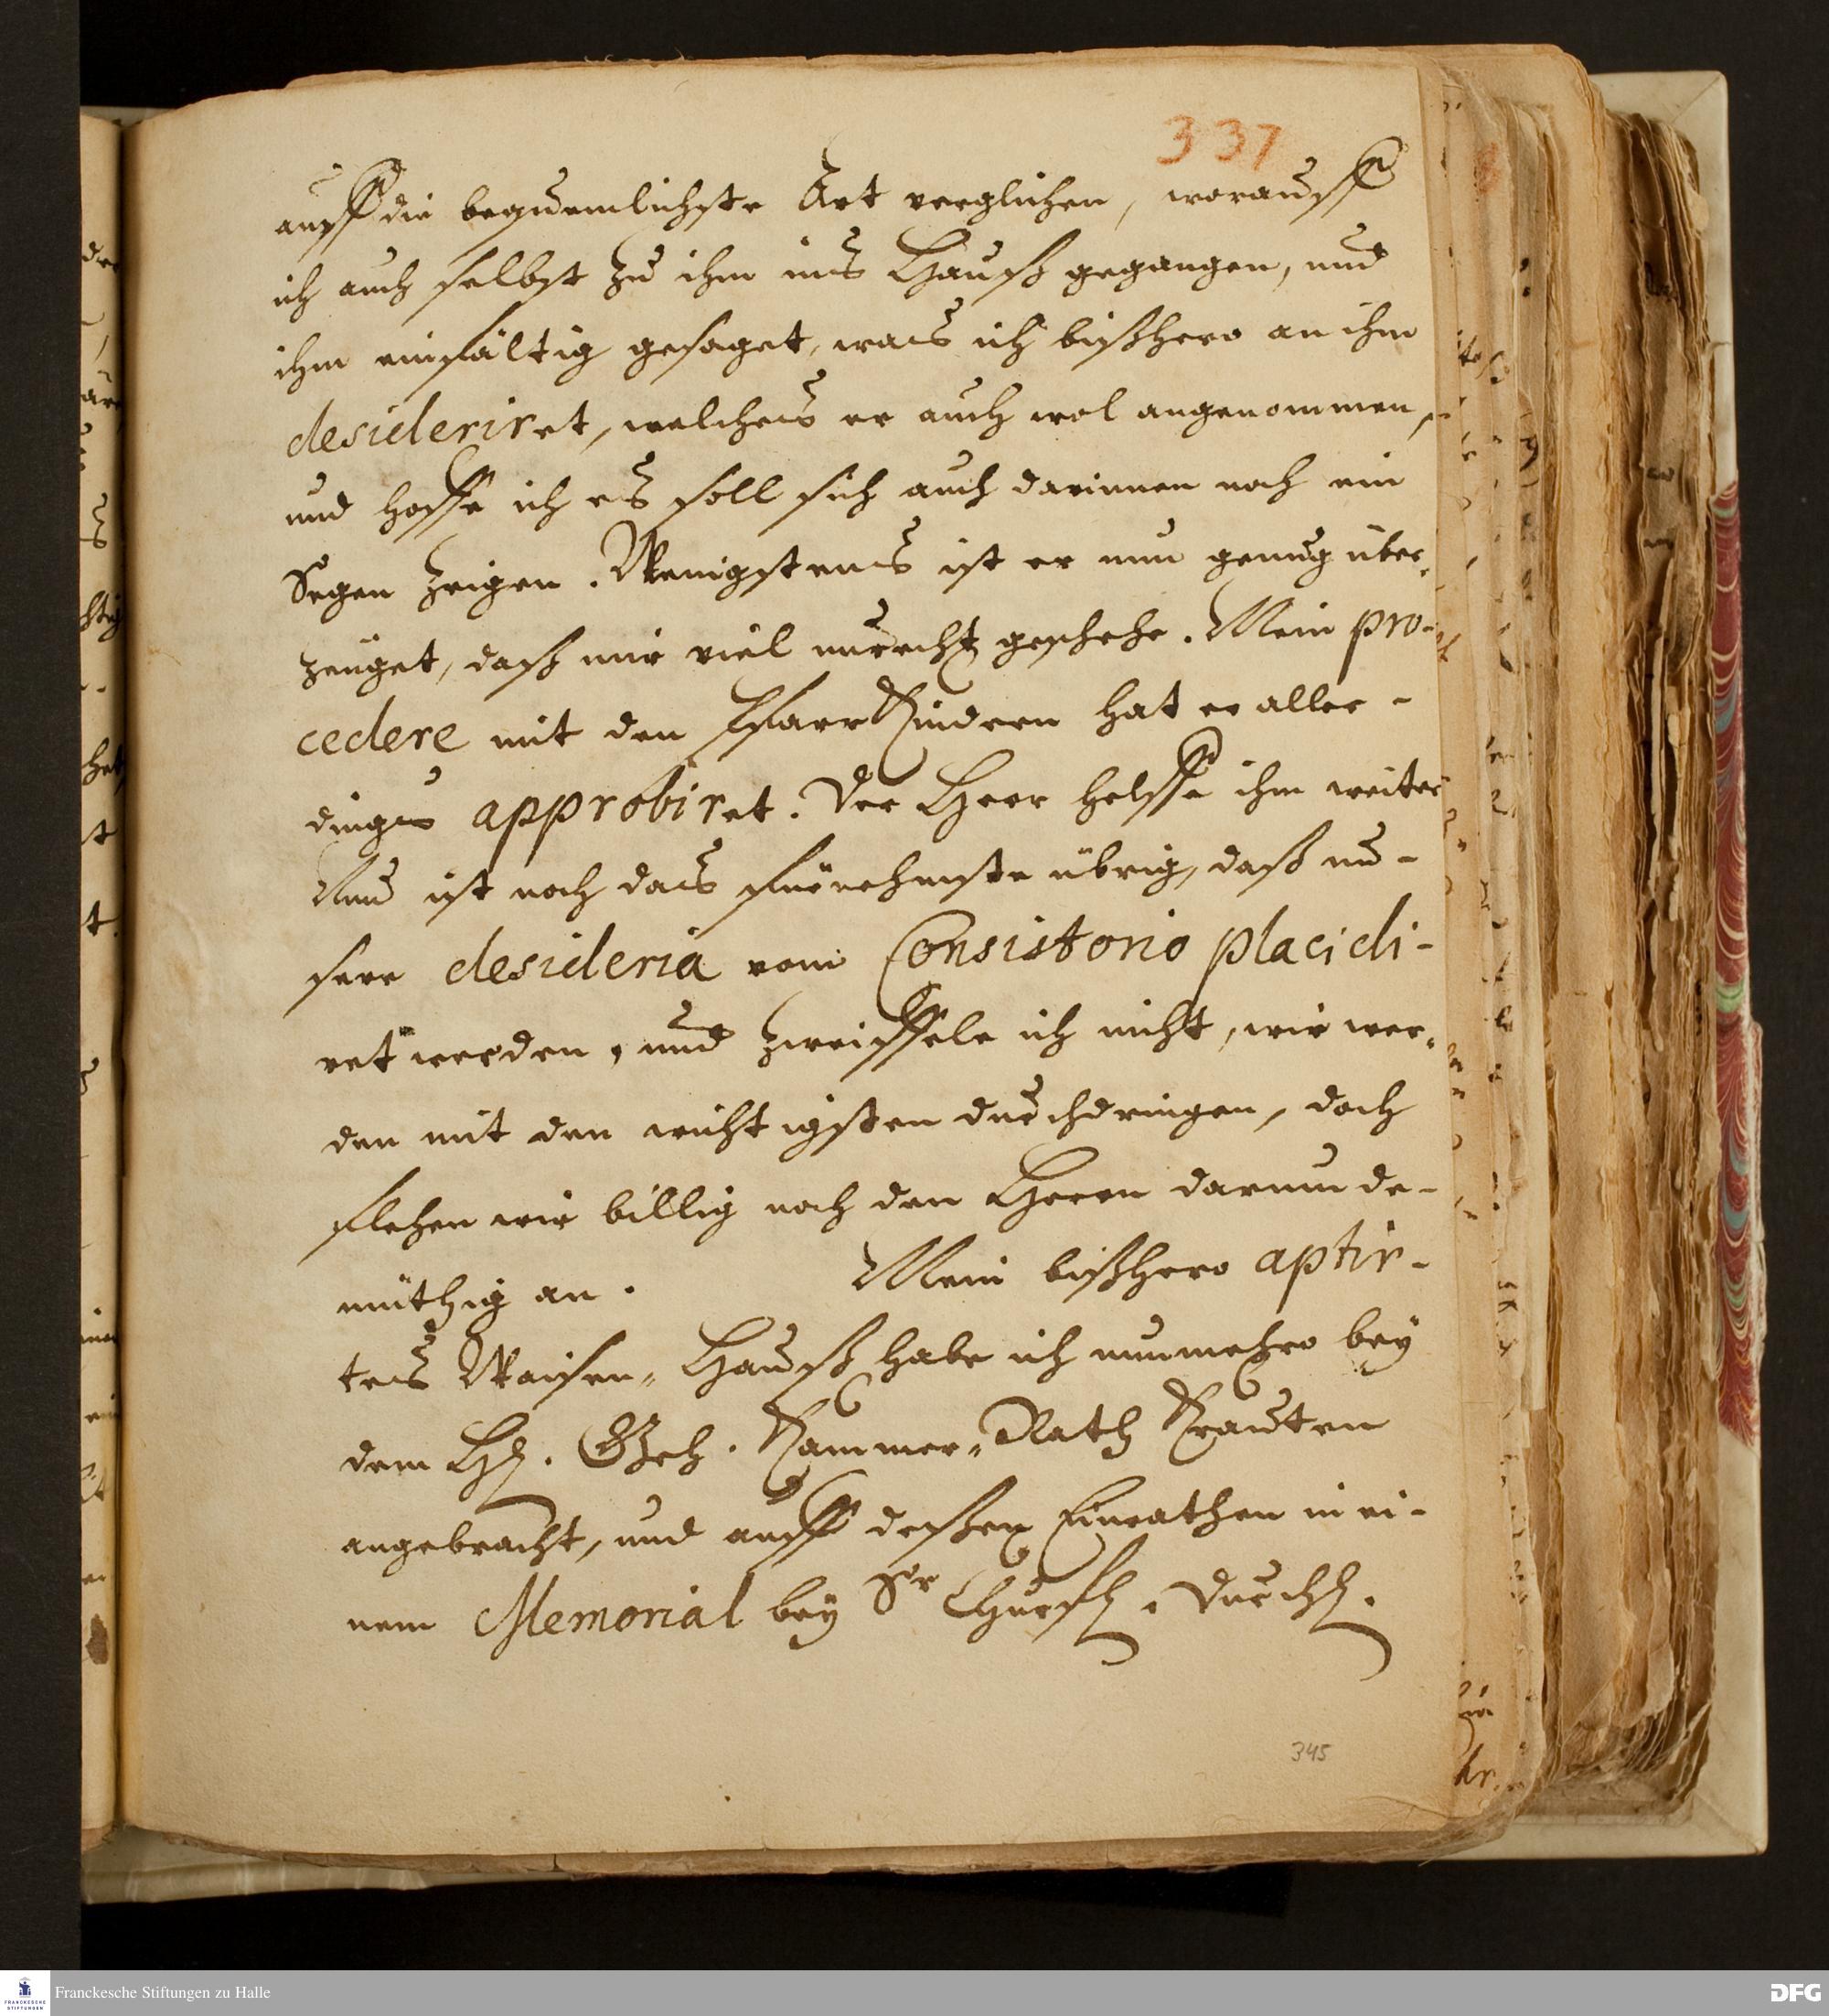 337
auff die bequemlichste Art verglichen, worauff
ich auch selbst zu ihm ins Hauß gegangen, und
ihm einfältig gesaget, was ich bißhero an ihm
desideriret, welches er auch wol angenommen,
und hoffe ich es soll sich auch darinnen noch ein
Segen zeigen. Wenigstens ist er nun genug über-
zeuget, daß mir viel unrecht geschehe. Mein pro-
cedere mit den Pfarr Kindern hat er aller-
dings approbiret. Der Herr helffe ihm weiter
Nun ist noch das fürnehmste übrig, daß un-
sere desideria vom Consistorio placidi-
ret werden, und zweiffele ich nicht, wir wer-
den mit den wichtigsten durchdringen, doch
flehen wir billig noch den Herrn darum de-
müthig an. Mein bißhero aptir-
tes Waisen-Hauß habe ich nunmehro bey
dem H. Geh. Kammer-Rath Krauten
angebracht, und auff deßen Einrathen in ei-
nem Memorial bey Sr Churfl. Durchl.
345
Franckesche Stiftungen zu Halle
FRANCKESCHE
STIFTUNGEN
DFG